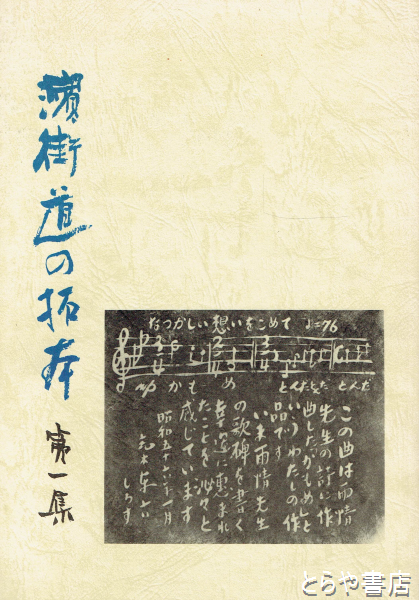 濱街道の拓本
第一集
なつかしい想いをこめて ♩=76
mp かも め とんだとんだ とんだ
この曲は雨情
先生の詩に作
曲した「かもめ」と
いうわたしの作
品です
いま雨情先生
の歌碑を書く
幸運に恵まれ
たことを沁々と
感じています
昭和五十六年一月
しるす
とらや書店